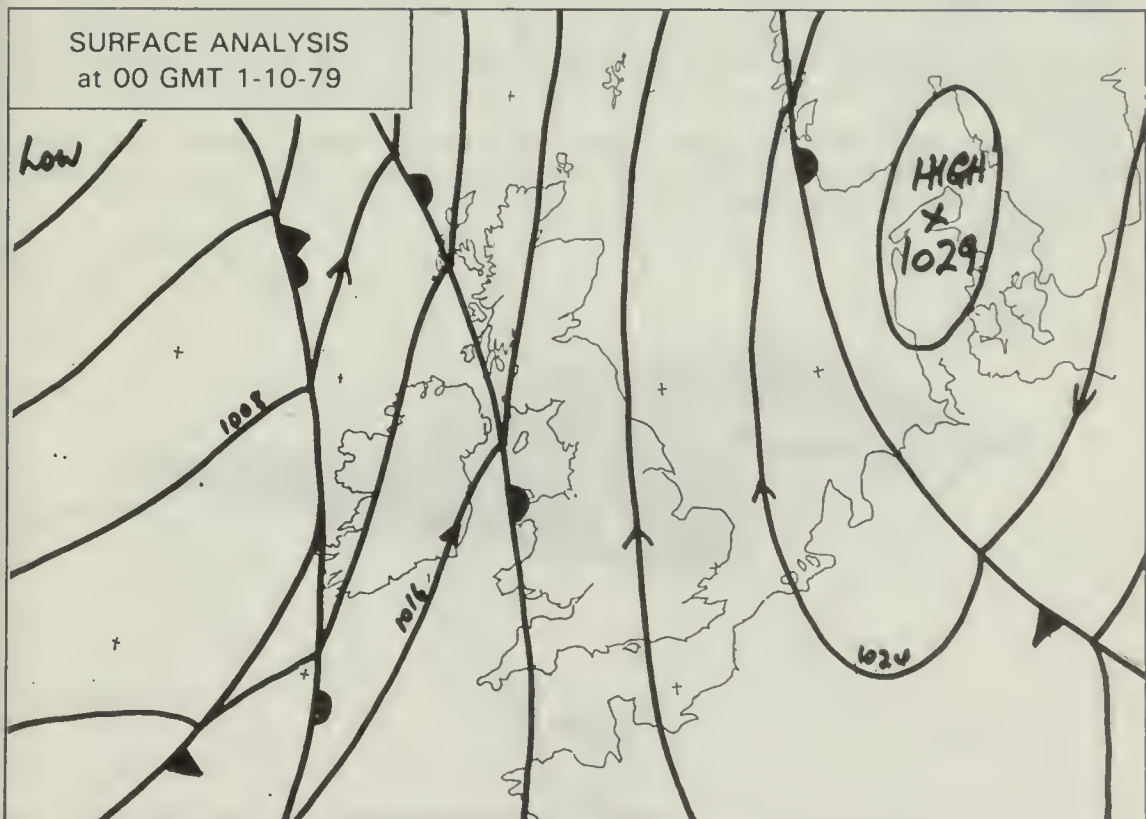 SURFACE ANALYSIS
at 00 GMT 1-10-79
Low
HIGH
x
1029
1008
1016
1024